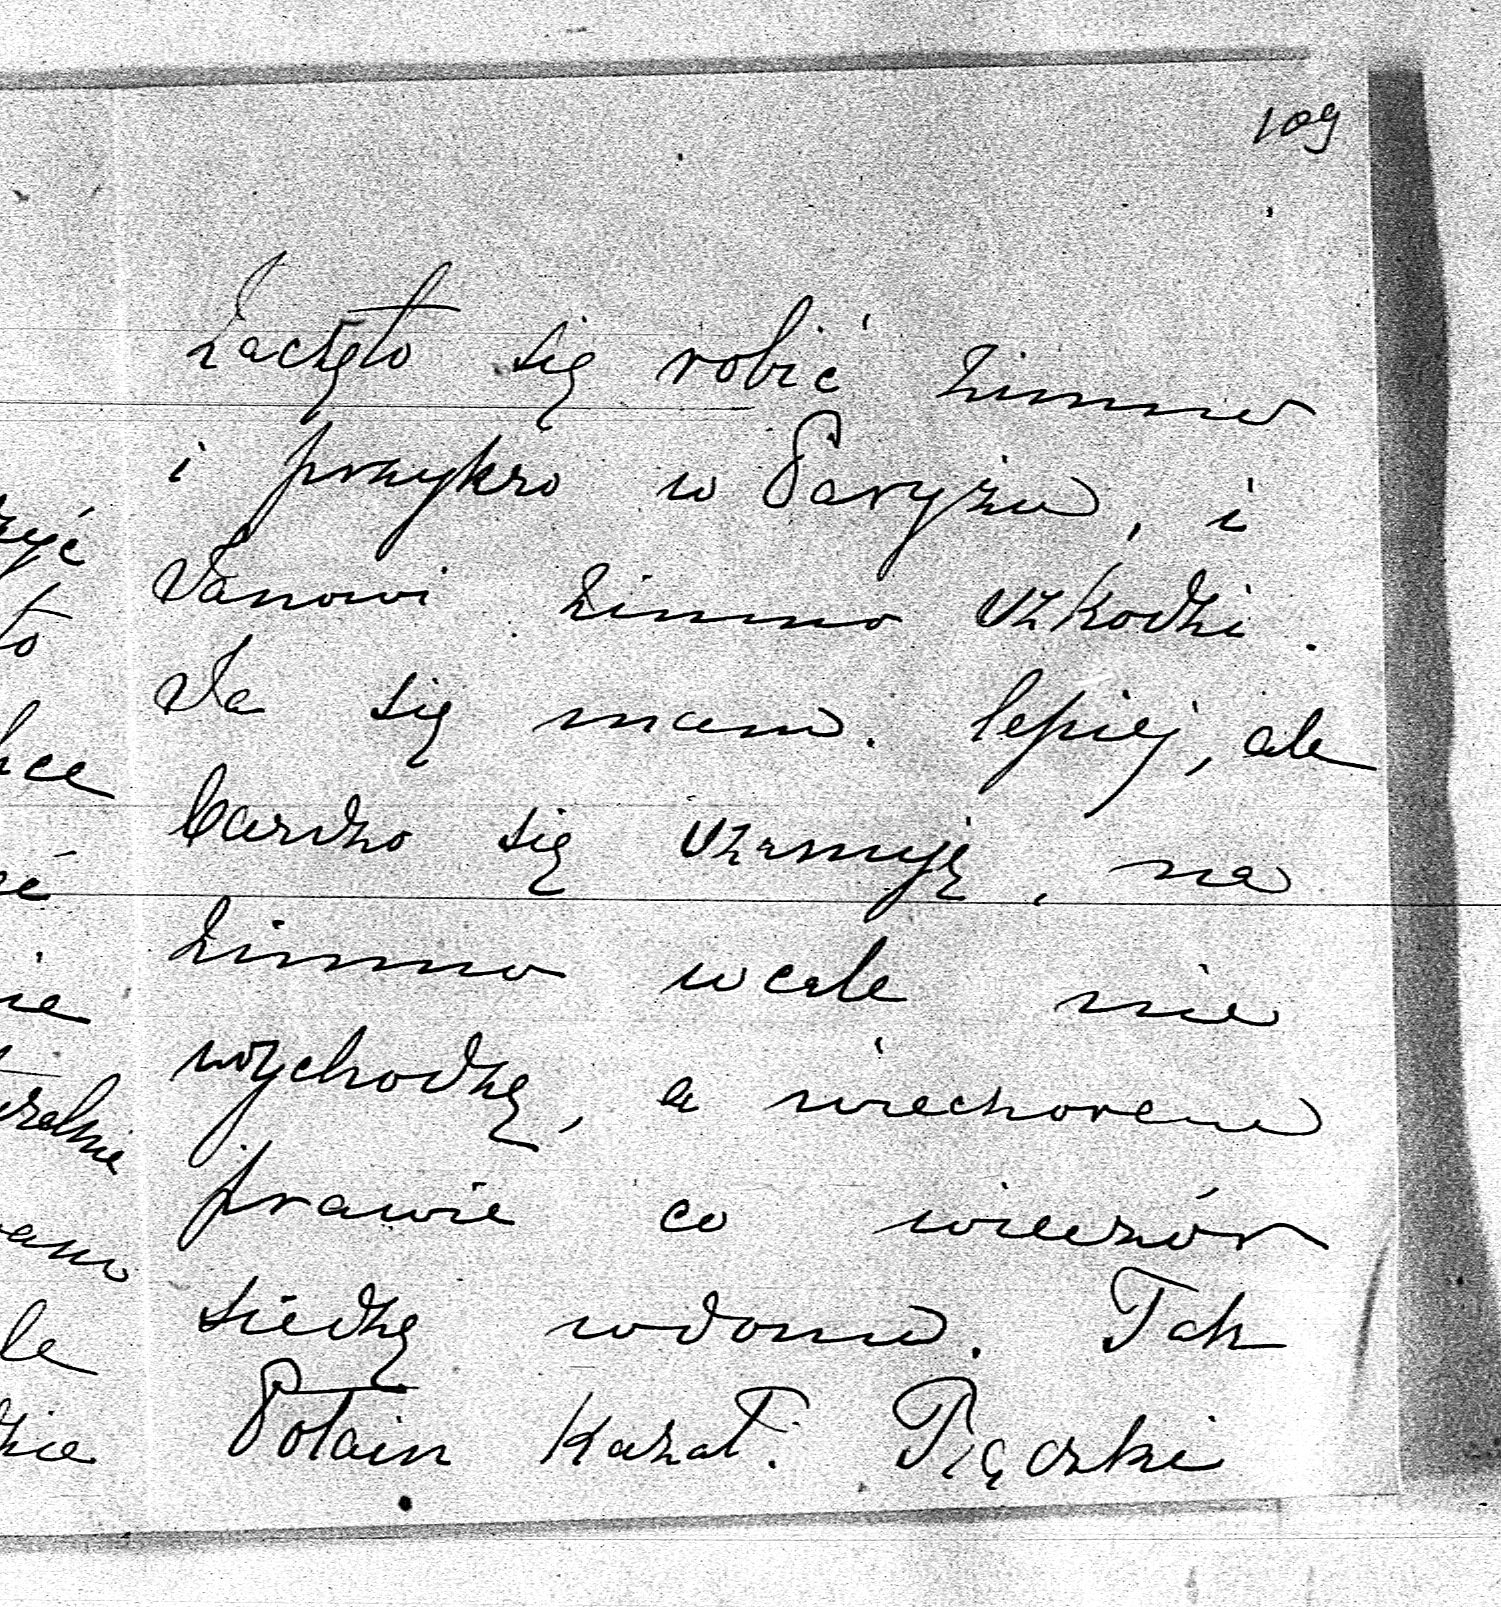 109
Zaczęło się robić zimno
i przykro w Paryżu, i
Janowi zimno szkodzi.
Ja się mam lepiej, ale
bardzo się szanuję, na
zimno wcale nie
wychodzę, a wieczorem
prawie co wieczór
siedzę w domu. Tak
Potain kazał. Rączki